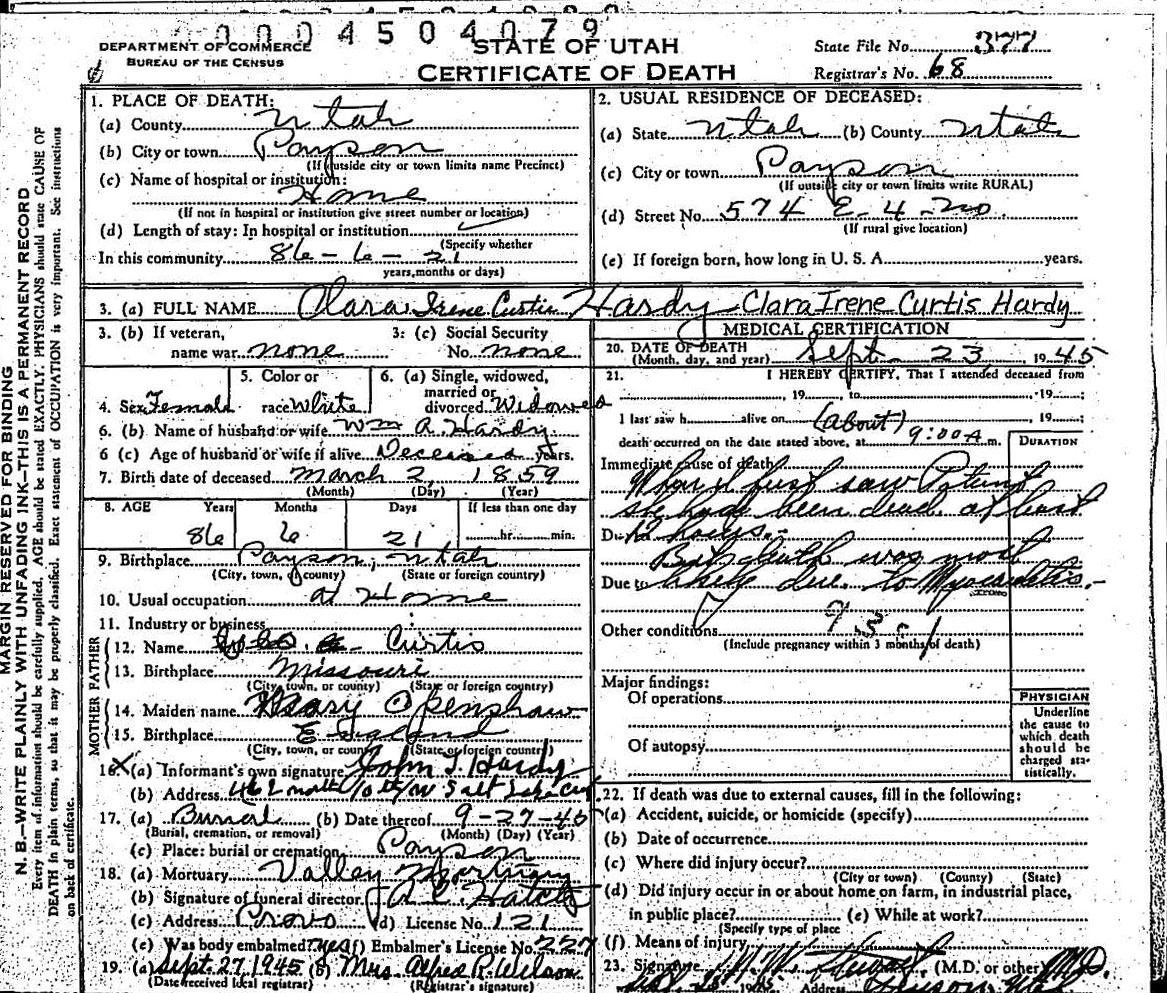 0 0 0 4 5 0 4 0 7 9
DEPARTMENT OF COMMERCE
BUREAU OF THE CENSUS
STATE OF UTAH
CERTIFICATE OF DEATH
State File No. 377
Registrar's No. 68
MARGIN RESERVED FOR BINDING
N. B.—WRITE PLAINLY WITH UNFADING INK—THIS IS A PERMANENT RECORD
Every item of information should be carefully supplied. AGE should be stated EXACTLY. PHYSICIANS should state CAUSE OF
DEATH in plain terms, so that it may be properly classified. Exact statement of OCCUPATION is very important. See instructions
on back of certificate.
1. PLACE OF DEATH:
(a) County Utah
(b) City or town Payson
(If outside city or town limits name Precinct)
(c) Name of hospital or institution:
Home
(If not in hospital or institution give street number or location)
(d) Length of stay: In hospital or institution
(Specify whether
In this community 86 - 6 - 21
years, months or days)
2. USUAL RESIDENCE OF DECEASED:
(a) State Utah (b) County Utah
(c) City or town Payson
(If outside city or town limits write RURAL)
(d) Street No. 574 E. 4 No.
(If rural give location)
(e) If foreign born, how long in U. S. A. years.
3. (a) FULL NAME Clara Irene Curtis Hardy Clara Irene Curtis Hardy
3. (b) If veteran, 3: (c) Social Security
name war none No. none
4. Sex Female 5. Color or race White 6. (a) Single, widowed, married or divorced Widowed
6. (b) Name of husband or wife Wm A. Hardy
6 (c) Age of husband or wife if alive Deceased years.
7. Birth date of deceased March 2, 1859
(Month) (Day) (Year)
8. AGE Years Months Days If less than one day
86 6 21 hr. min.
9. Birthplace Payson, Utah
(City, town, or county) (State or foreign country)
10. Usual occupation at Home
11. Industry or business
FATHER
12. Name Curtis
13. Birthplace Missouri
(City, town, or county) (State or foreign country)
MOTHER
14. Maiden name Mary Openshaw
15. Birthplace England
(City, town, or county) (State or foreign country)
16. X (a) Informant's own signature John T. Hardy
(b) Address 462 north 10th W Salt Lake City
17. (a) Burial (b) Date thereof 9-27-45
(Burial, cremation, or removal) (Month) (Day) (Year)
(c) Place: burial or cremation Payson
18. (a) Mortuary Valley Mortuary
(b) Signature of funeral director A. E. Hatch
(c) Address Provo (d) License No. 121
(e) Was body embalmed? yes (f) Embalmer's License No. 227
19. (a) Sept. 27, 1945 (b) Mrs. Alfred R. Wilson
(Date received local registrar) (Registrar's signature)
MEDICAL CERTIFICATION
20. DATE OF DEATH
(Month, day, and year) Sept 23, 1945
21. I HEREBY CERTIFY, That I attended deceased from
, 19 to , 19 ;
I last saw h alive on (about) , 19 ;
death occurred on the date stated above, at 9:00 A m.
DURATION
Immediate cause of death
When I first saw Patient
she had been dead at least
Due to 12 hours.-
But death was most
Due to likely due to Myocarditis.-
Other conditions
(Include pregnancy within 3 months of death)
Major findings:
Of operations
Of autopsy
PHYSICIAN
Underline
the cause to
which death
should be
charged sta-
tistically.
22. If death was due to external causes, fill in the following:
(a) Accident, suicide, or homicide (specify)
(b) Date of occurrence
(c) Where did injury occur?
(City or town) (County) (State)
(d) Did injury occur in or about home on farm, in industrial place,
in public place? (e) While at work?
(Specify type of place
(f) Means of injury
23. Signature (M.D. or other) M.D.
Address Payson Utah